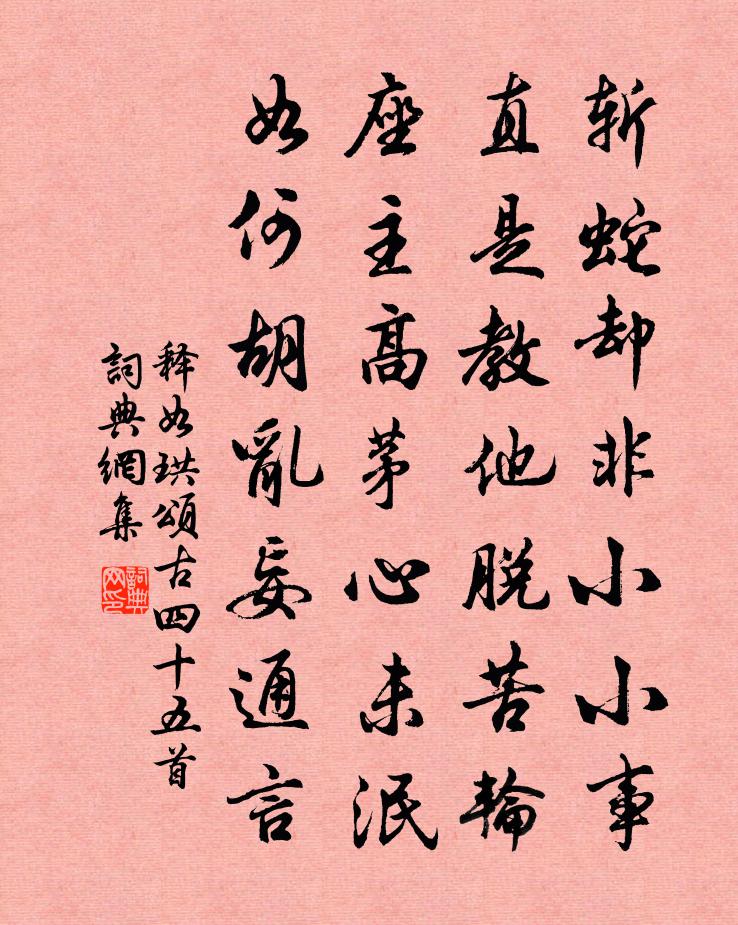 斬蛇却非小小事
直是教他脫苦輪
座主高茅心未泯
如何胡亂妄通言
释如珙頌古四十五首
詞典網集
詞典网印